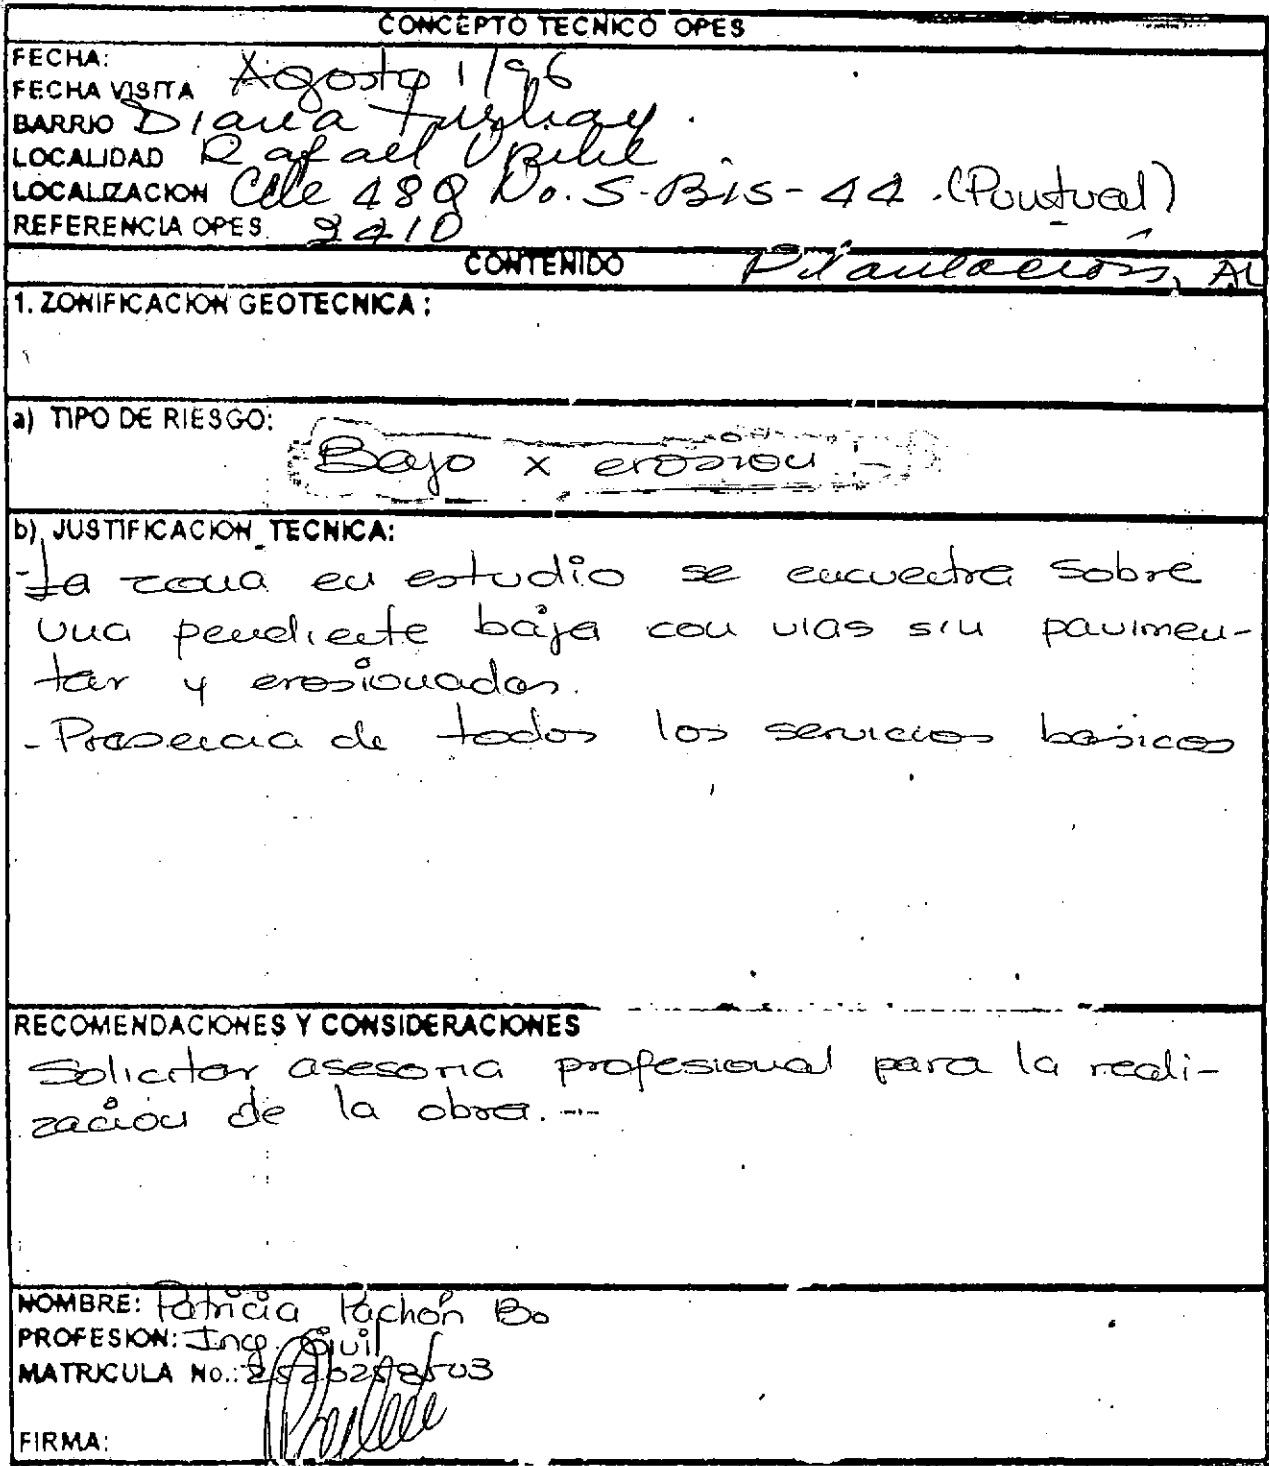 CONCEPTO TECNICO OPES
FECHA:
FECHA VISITA Agosto 1/96
BARRIO Diana Turbay.
LOCALIDAD Rafael Uribe
LOCALIZACION Clle 48Q No. 5-Bis-44. (Puntual)
REFERENCIA OPES. 2410
CONTENIDO
1. ZONIFICACION GEOTECNICA :
a) TIPO DE RIESGO:
Bajo x erosion
b) JUSTIFICACION TECNICA:
-La zona en estudio se encuentra sobre
una pendiente baja con vias sin pavimen-
tar y erosionadas.
- Presencia de todos los servicios basicos
RECOMENDACIONES Y CONSIDERACIONES
Solicitar asesoria profesional para la reali-
zación de la obra.
NOMBRE: Patricia Pachón Bo
PROFESION: Ing. Civil
MATRICULA No.:
FIRMA: